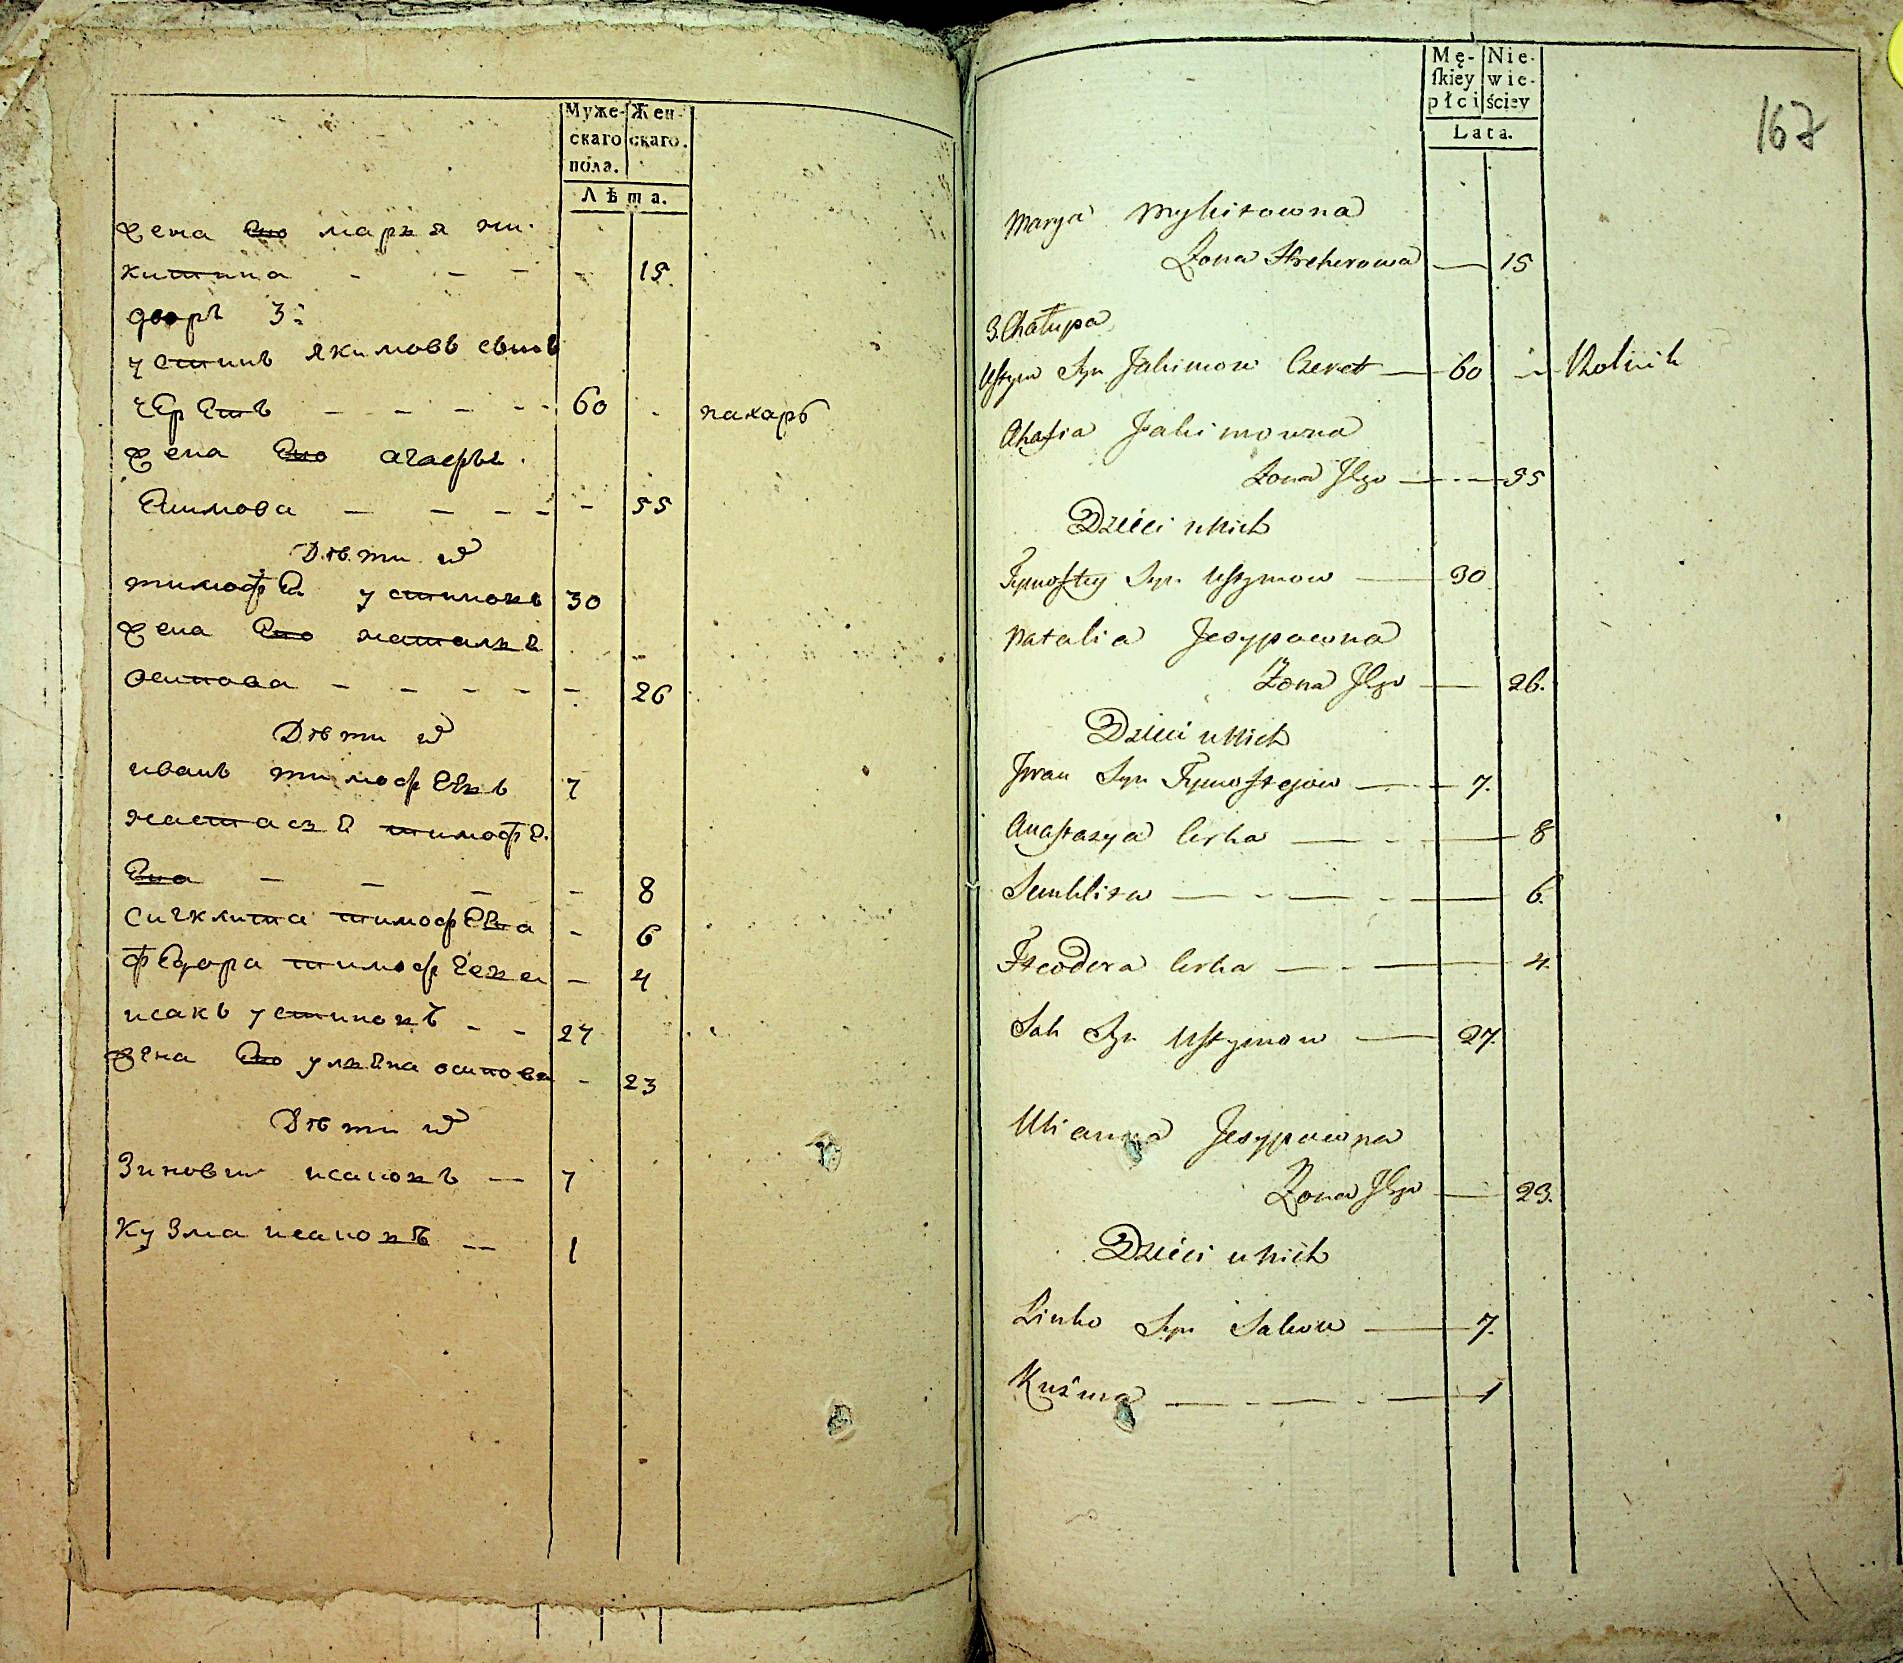 Муже-
скаго
пола.
Жен-
скаго.
Лѣта.
жена его марья ни-
китина - - - - 15.
дворъ 3:
устинъ якимовъ сынъ
черетъ - - - - 60 - пахарь
жена его агафья
екимова - - - - - 55
Дѣти их
тимофей устиновъ 30
жена его наталья
осипова - - - - - 26
Дѣти их
иванъ тимофеевъ 7
настасья тимофе-
ева - - - - 8
сигклита тимофеева - 6
федора тимофеева - 4
исакъ устиновъ - - 27
жена его ульяна осипова - 23
Дѣти их
Зиновий исаковъ - 7
Кузма исаковъ - 1
Mę-
ſkiey
płci
Nie-
wie-
ściey
Lata.
167
Marya Mykitowna
Żona - 15
3. Chałupa
Ustym Syn Jakimow Czeret - 60 - Rolnik
Ahafia Jakimowna
Żona Jego - - 55
Dzieci u Nich
Tymoftey Syn Ustymow - 30
Natalia Jesypowna
Żona Jego - 26.
Dzieci u Nich
Jwan Syn Tymoftejow - - 7.
Anastazya Corka - - - 8
Senklita - - - - - 6.
Fteodora Corka - - - 4.
Sak Syn Ustymow - 27.
Ulianna Jesypowna
Żona Jego - 23.
Dzieci u Nich
Zinko Syn Sakow - 7.
Kuźma - - - - - 1